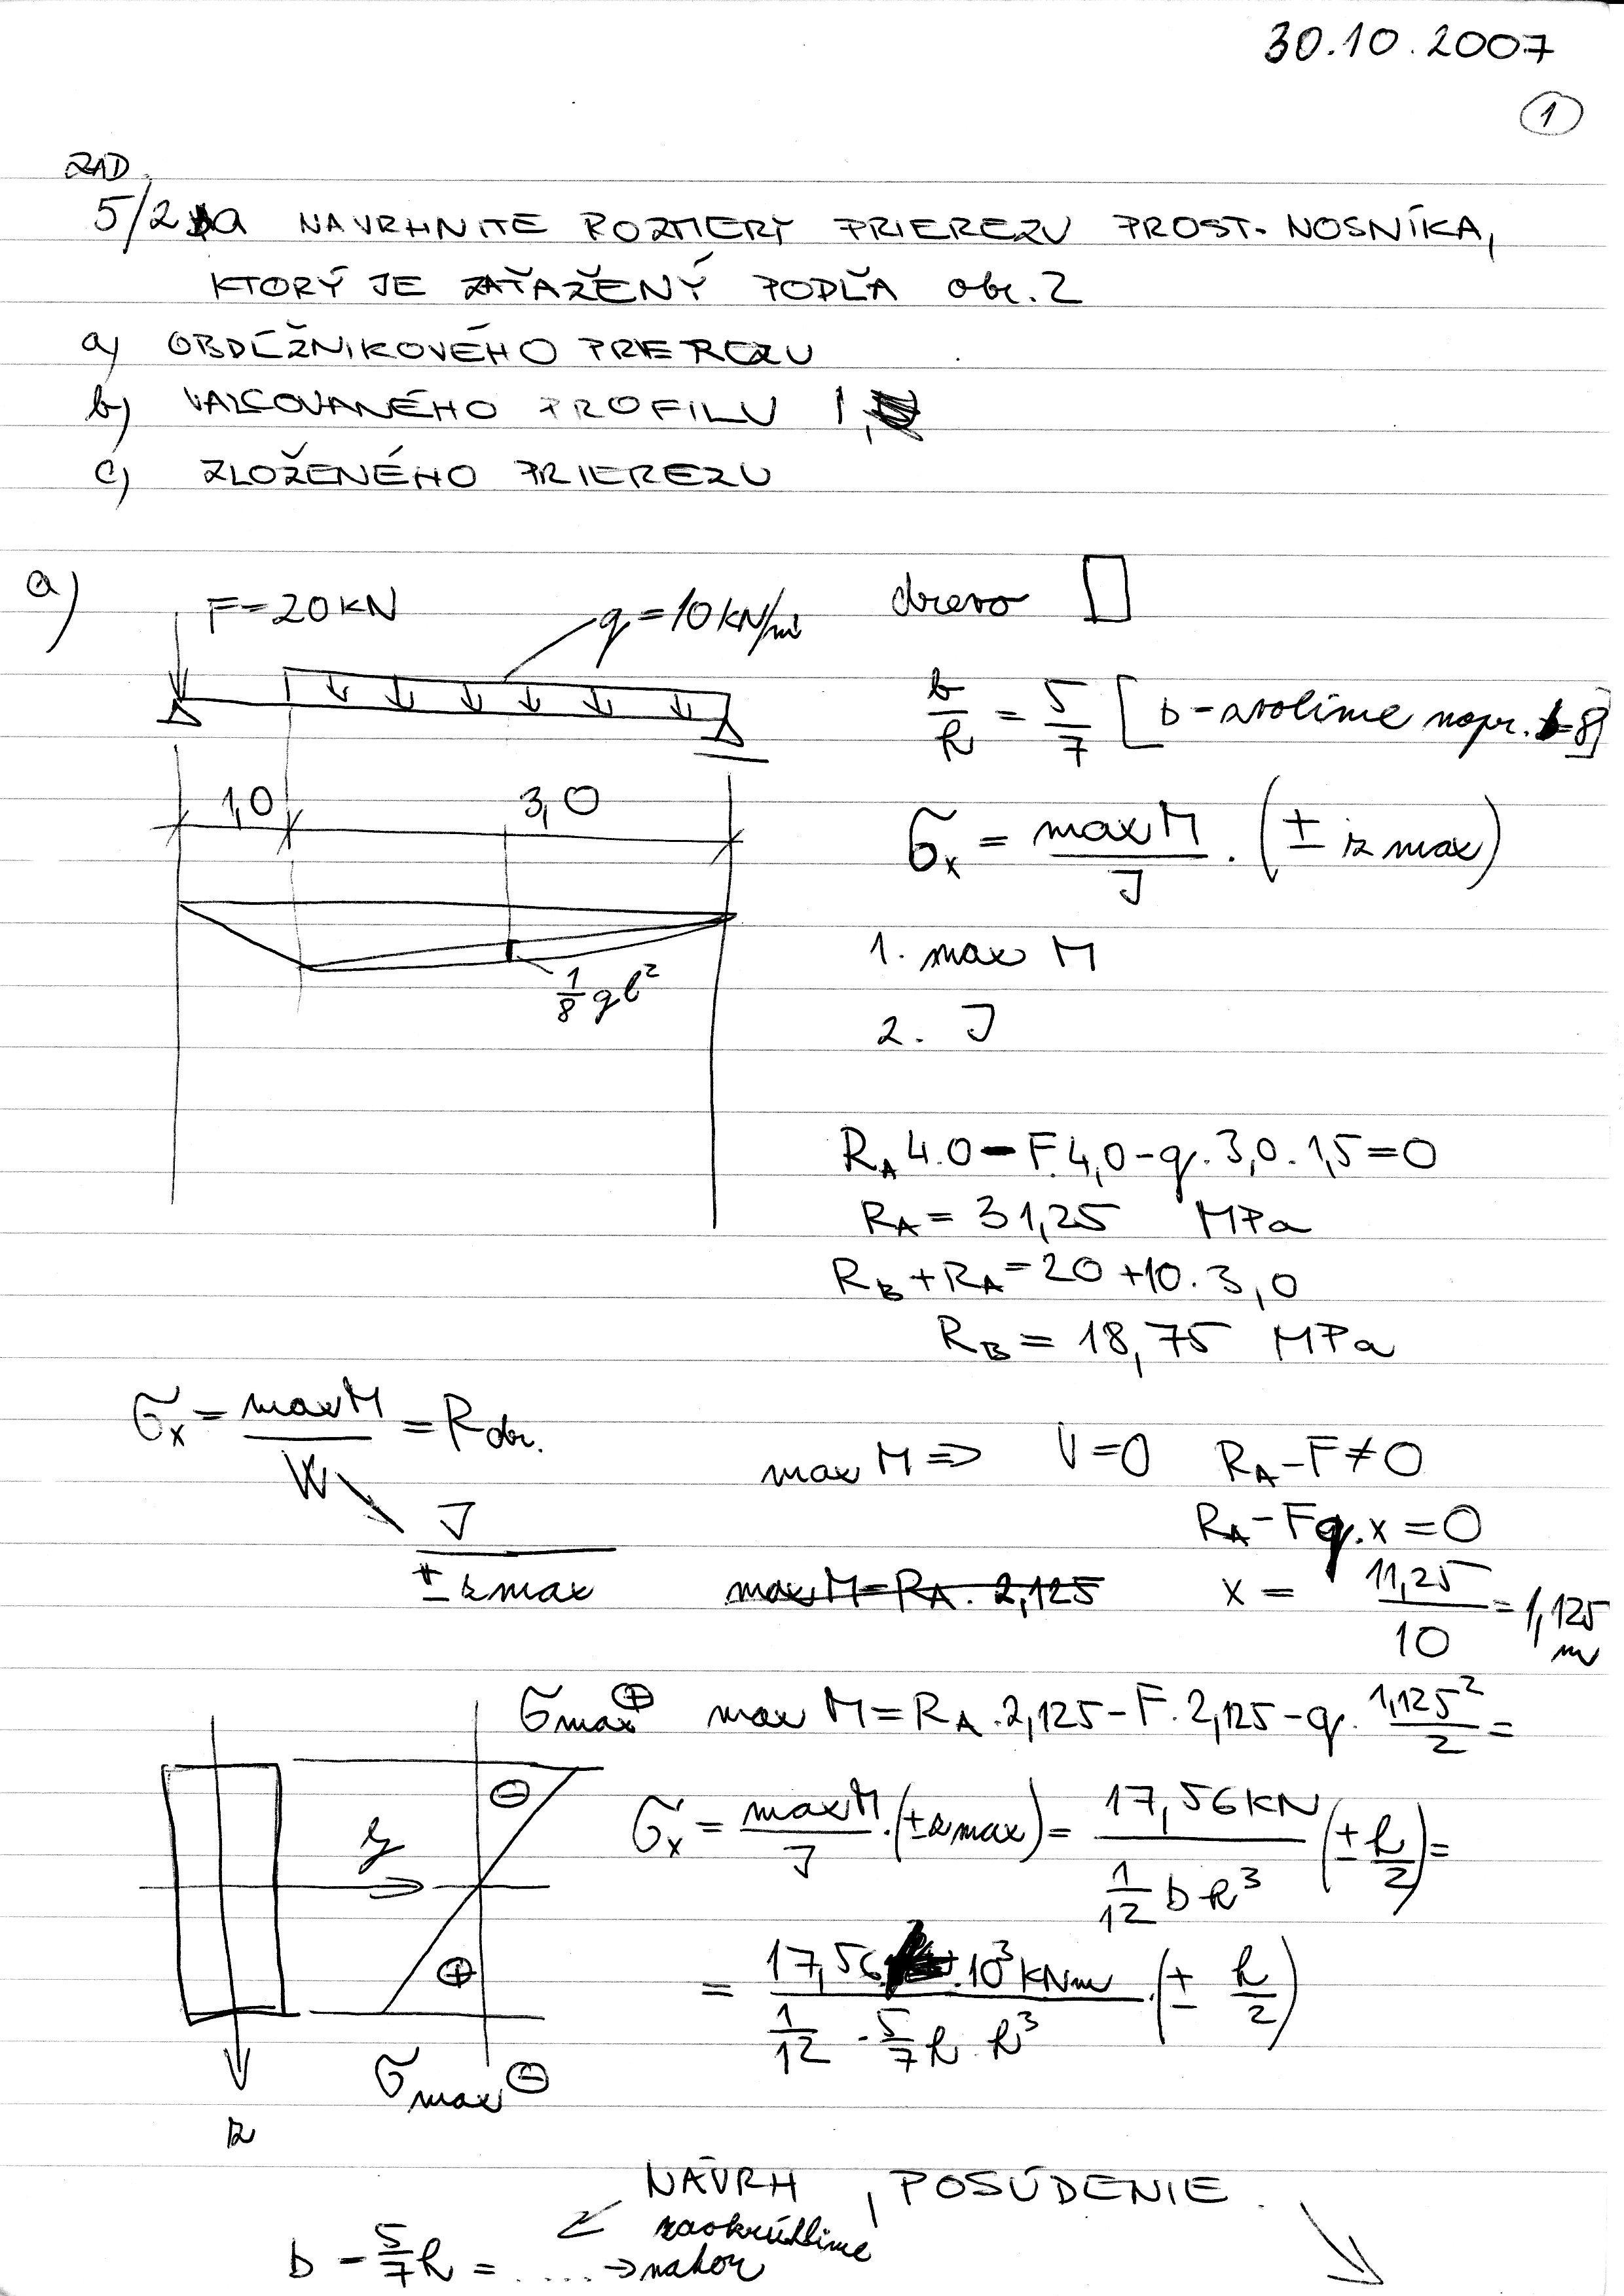 30.10.2007
1
ZAD.
5/2 a NAVRHNITE ROZMERY PRIEREZU PROST. NOSNÍKA,
KTORÝ JE ZAŤAŽENÝ PODĽA obr. 2
a) OBDĹŽNIKOVÉHO PRIEREZU
b) VALCOVANÉHO PROFILU I,
c) ZLOŽENÉHO PRIEREZU
a)
F=20KN
q=10KN/m
drevo
b/h = 5/7 [b-zvolíme napr. =8]
1,0 3,0
σx = maxM/J . (± z max)
1/8 ql²
1. max M
2. J
RA 4.0 - F.4,0 - q.3,0.1,5=0
RA = 31,25 MPa
RB + RA = 20 + 10.3,0
RB = 18,75 MPa
σx = maxM/W = Rdr.
J/± zmax
max M => V=0 RA-F≠0
RA-Fq.x=0
maxM=RA.2,125
x = 11,25/10 = 1,125 m
σmax ⊕ max M = RA.2,125-F.2,125-q.1,125²/2 =
⊖
y
σx = maxM/J .(±zmax) = 17,56KN/(1/12 b h³) (± h/2) =
⊕
= 17,56.10³KNm/(1/12 . 5/7 h . h³) .(± h/2)
σmax ⊖
z
NÁVRH, POSÚDENIE.
zaokrúhlime
b - 5/7 h = ..... → nahor